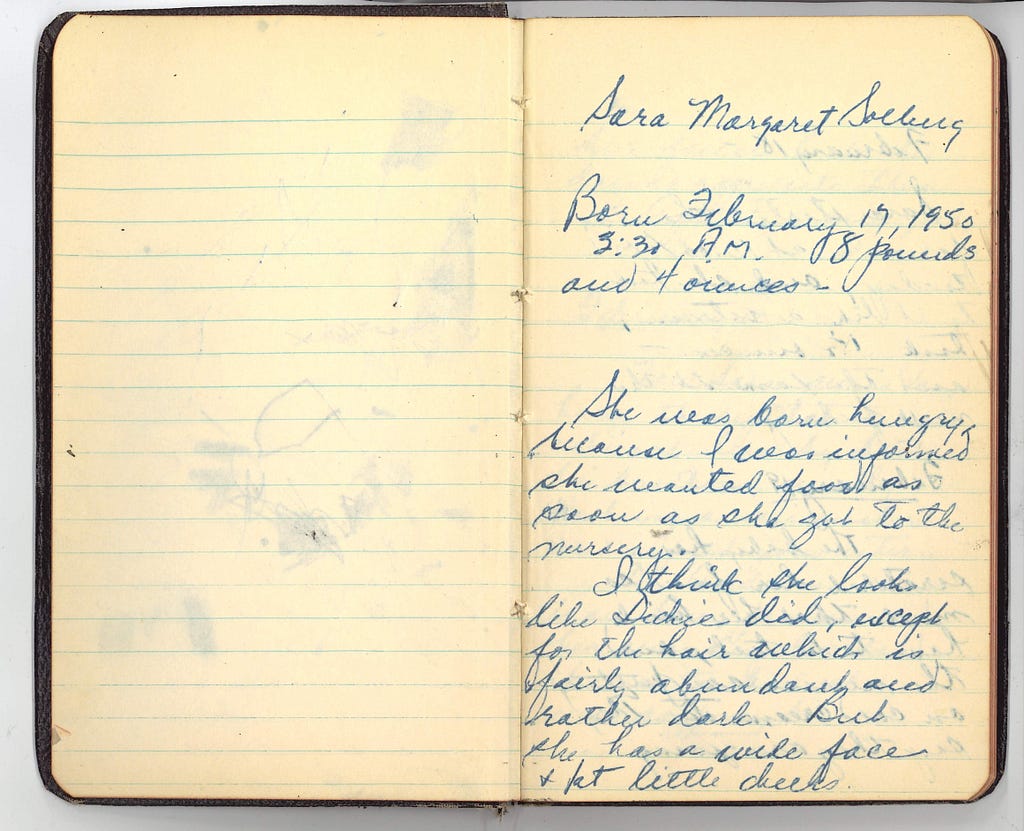 Sara Margaret Solberg
Born February 17, 1950
3:30 A.M. 8 pounds
and 4 ounces -
She was born hungry,
because I was informed
she wanted food as
soon as she got to the
nursery.
I think she looks
like did, except
for the hair which is
fairly abundant and
rather dark. But
she has a wide face
& fat little cheeks.